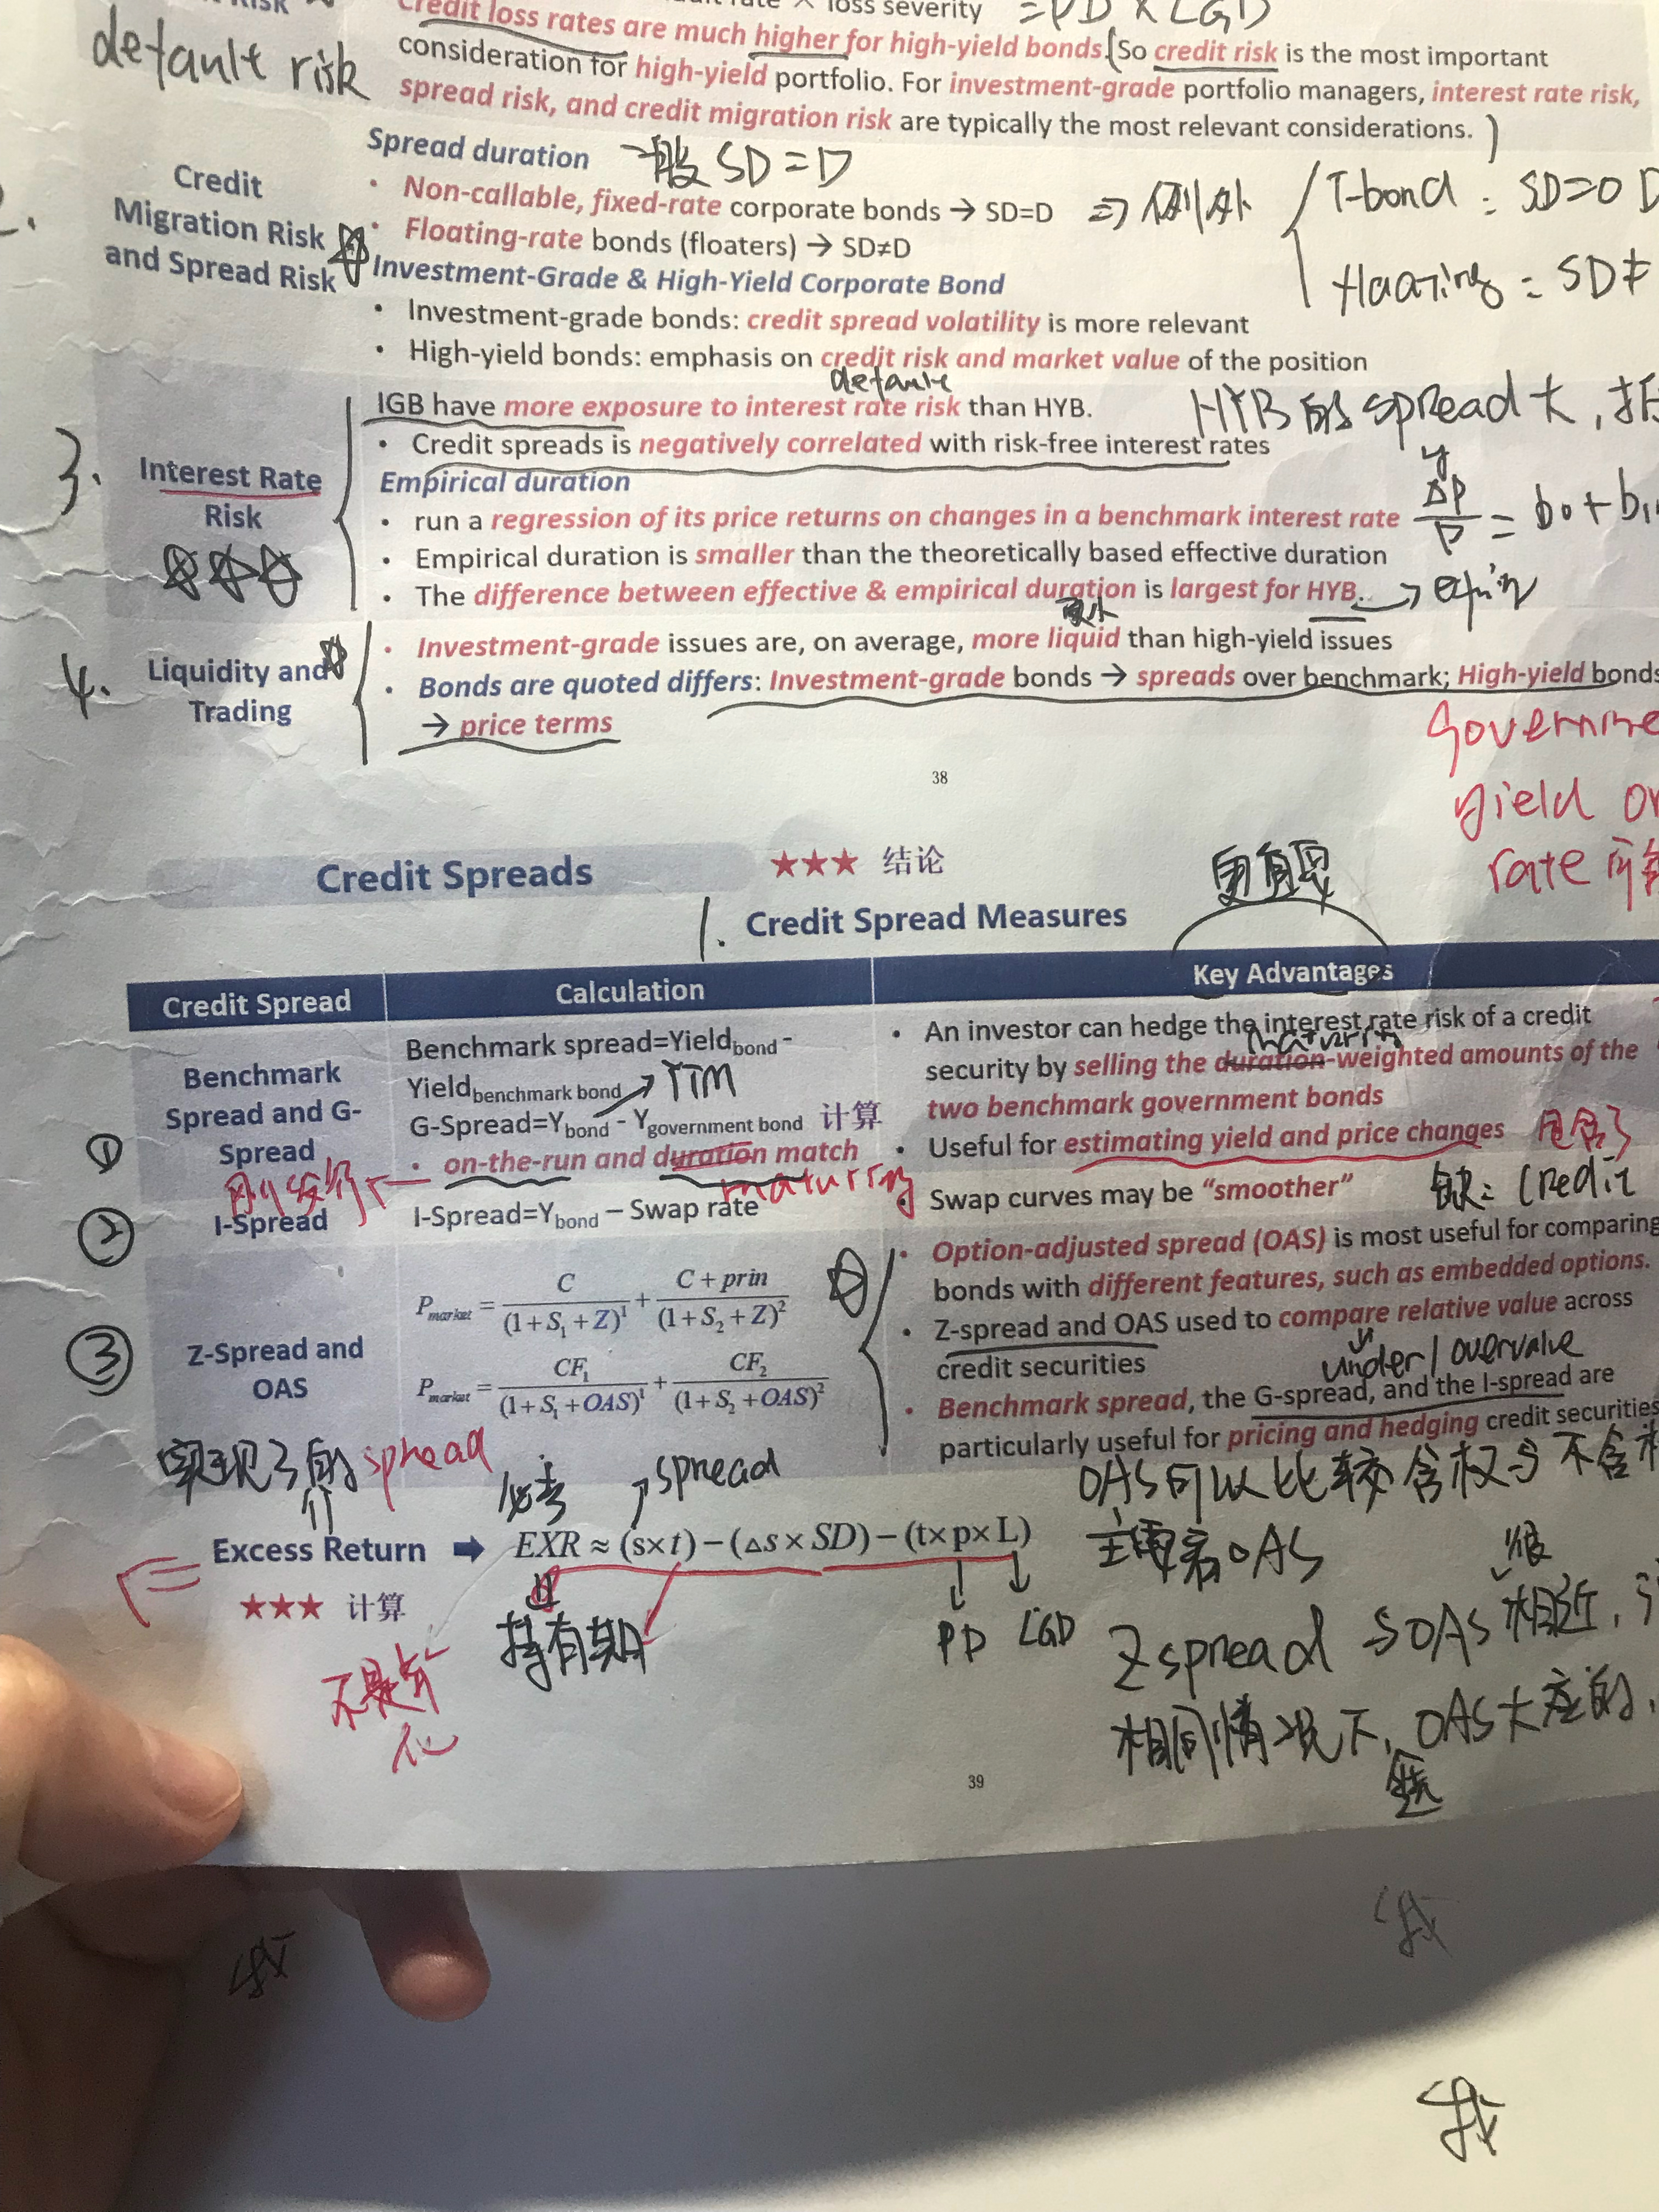 loss severity =PD×LGD
default risk
Credit loss rates are much higher for high-yield bonds. (So credit risk is the most important
consideration for high-yield portfolio. For investment-grade portfolio managers, interest rate risk,
spread risk, and credit migration risk are typically the most relevant considerations. )
2.
Credit
Migration Risk
and Spread Risk
Spread duration 一般 SD=D
• Non-callable, fixed-rate corporate bonds → SD=D ⇒ 例外 T-bond : SD=0 D
• Floating-rate bonds (floaters) → SD≠D
floating = SD≠
Investment-Grade & High-Yield Corporate Bond
• Investment-grade bonds: credit spread volatility is more relevant
• High-yield bonds: emphasis on credit risk and market value of the position
default
3.
Interest Rate
Risk
IGB have more exposure to interest rate risk than HYB.
HYB的spread大,
• Credit spreads is negatively correlated with risk-free interest rates
Empirical duration
y
• run a regression of its price returns on changes in a benchmark interest rate ΔP/P = b0 + b1
• Empirical duration is smaller than the theoretically based effective duration
• The difference between effective & empirical duration is largest for HYB. →
4.
Liquidity and
Trading
• Investment-grade issues are, on average, more liquid than high-yield issues
• Bonds are quoted differs: Investment-grade bonds → spreads over benchmark; High-yield bonds
→ price terms
38
yield or
rate
Credit Spreads ★★★ 结论
1. Credit Spread Measures
Credit Spread Calculation Key Advantages
①
Benchmark
Spread and G-
Spread
刚发行
Benchmark spread=Yield bond -
Yield benchmark bond → YTM
G-Spread=Y bond - Y government bond 计算
• on-the-run and duration match
maturity
• An investor can hedge the interest rate risk of a credit
maturity
security by selling the duration-weighted amounts of the
two benchmark government bonds
• Useful for estimating yield and price changes
②
I-Spread
I-Spread=Y bond – Swap rate
• Swap curves may be “smoother”
缺: Credit
③
Z-Spread and
OAS
P market = C/(1+S1+Z)^1 + C+prin/(1+S2+Z)^2
P market = CF1/(1+S1+OAS)^1 + CF2/(1+S2+OAS)^2
• Option-adjusted spread (OAS) is most useful for comparing
bonds with different features, such as embedded options.
• Z-spread and OAS used to compare relative value across
credit securities
under/overvalue
• Benchmark spread, the G-spread, and the I-spread are
particularly useful for pricing and hedging credit securities
实现了的spread
必考
spread
OAS可以比较含权与不含
Excess Return ➡ EXR ≈ (s×t)−(△s×SD)−(t×p×L)
主要看OAS
★★★ 计算
持有期
PD LGD
不是年化
Zspread 与OAS 很相近,
相同情况下, OAS大应的,
39